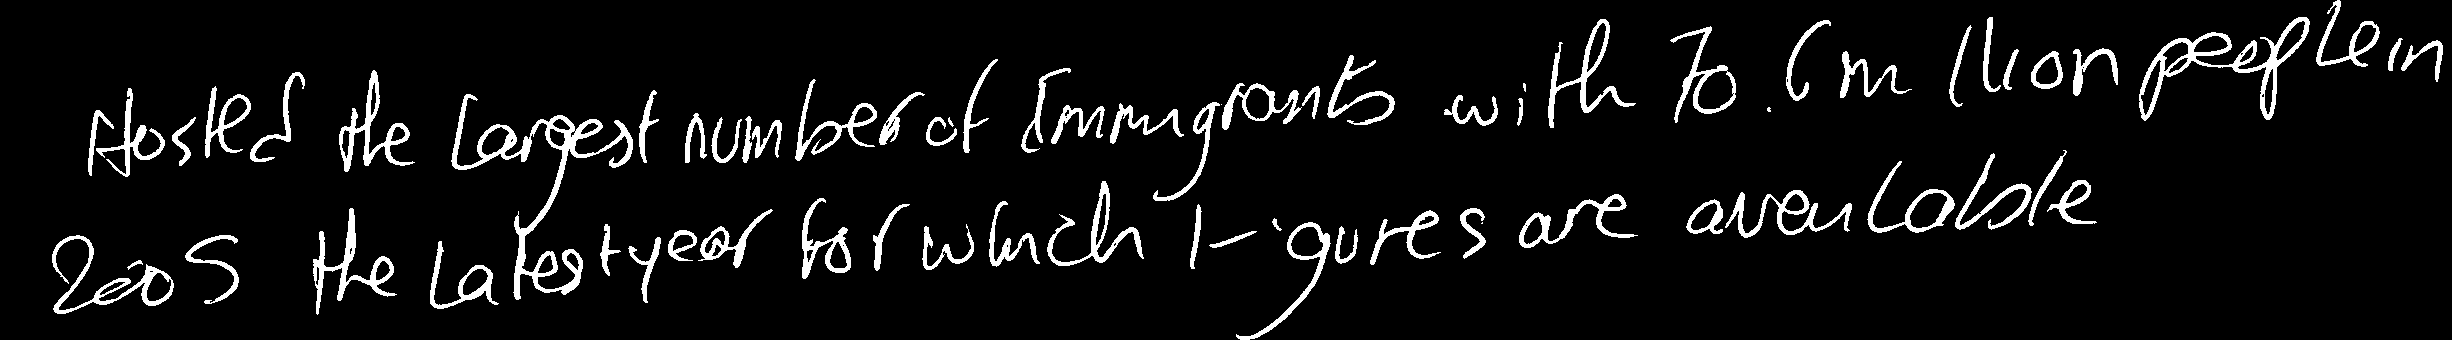 Hosted the largest number of Immigrants with 70.6 million people in
2005 the latest year for which figures are available